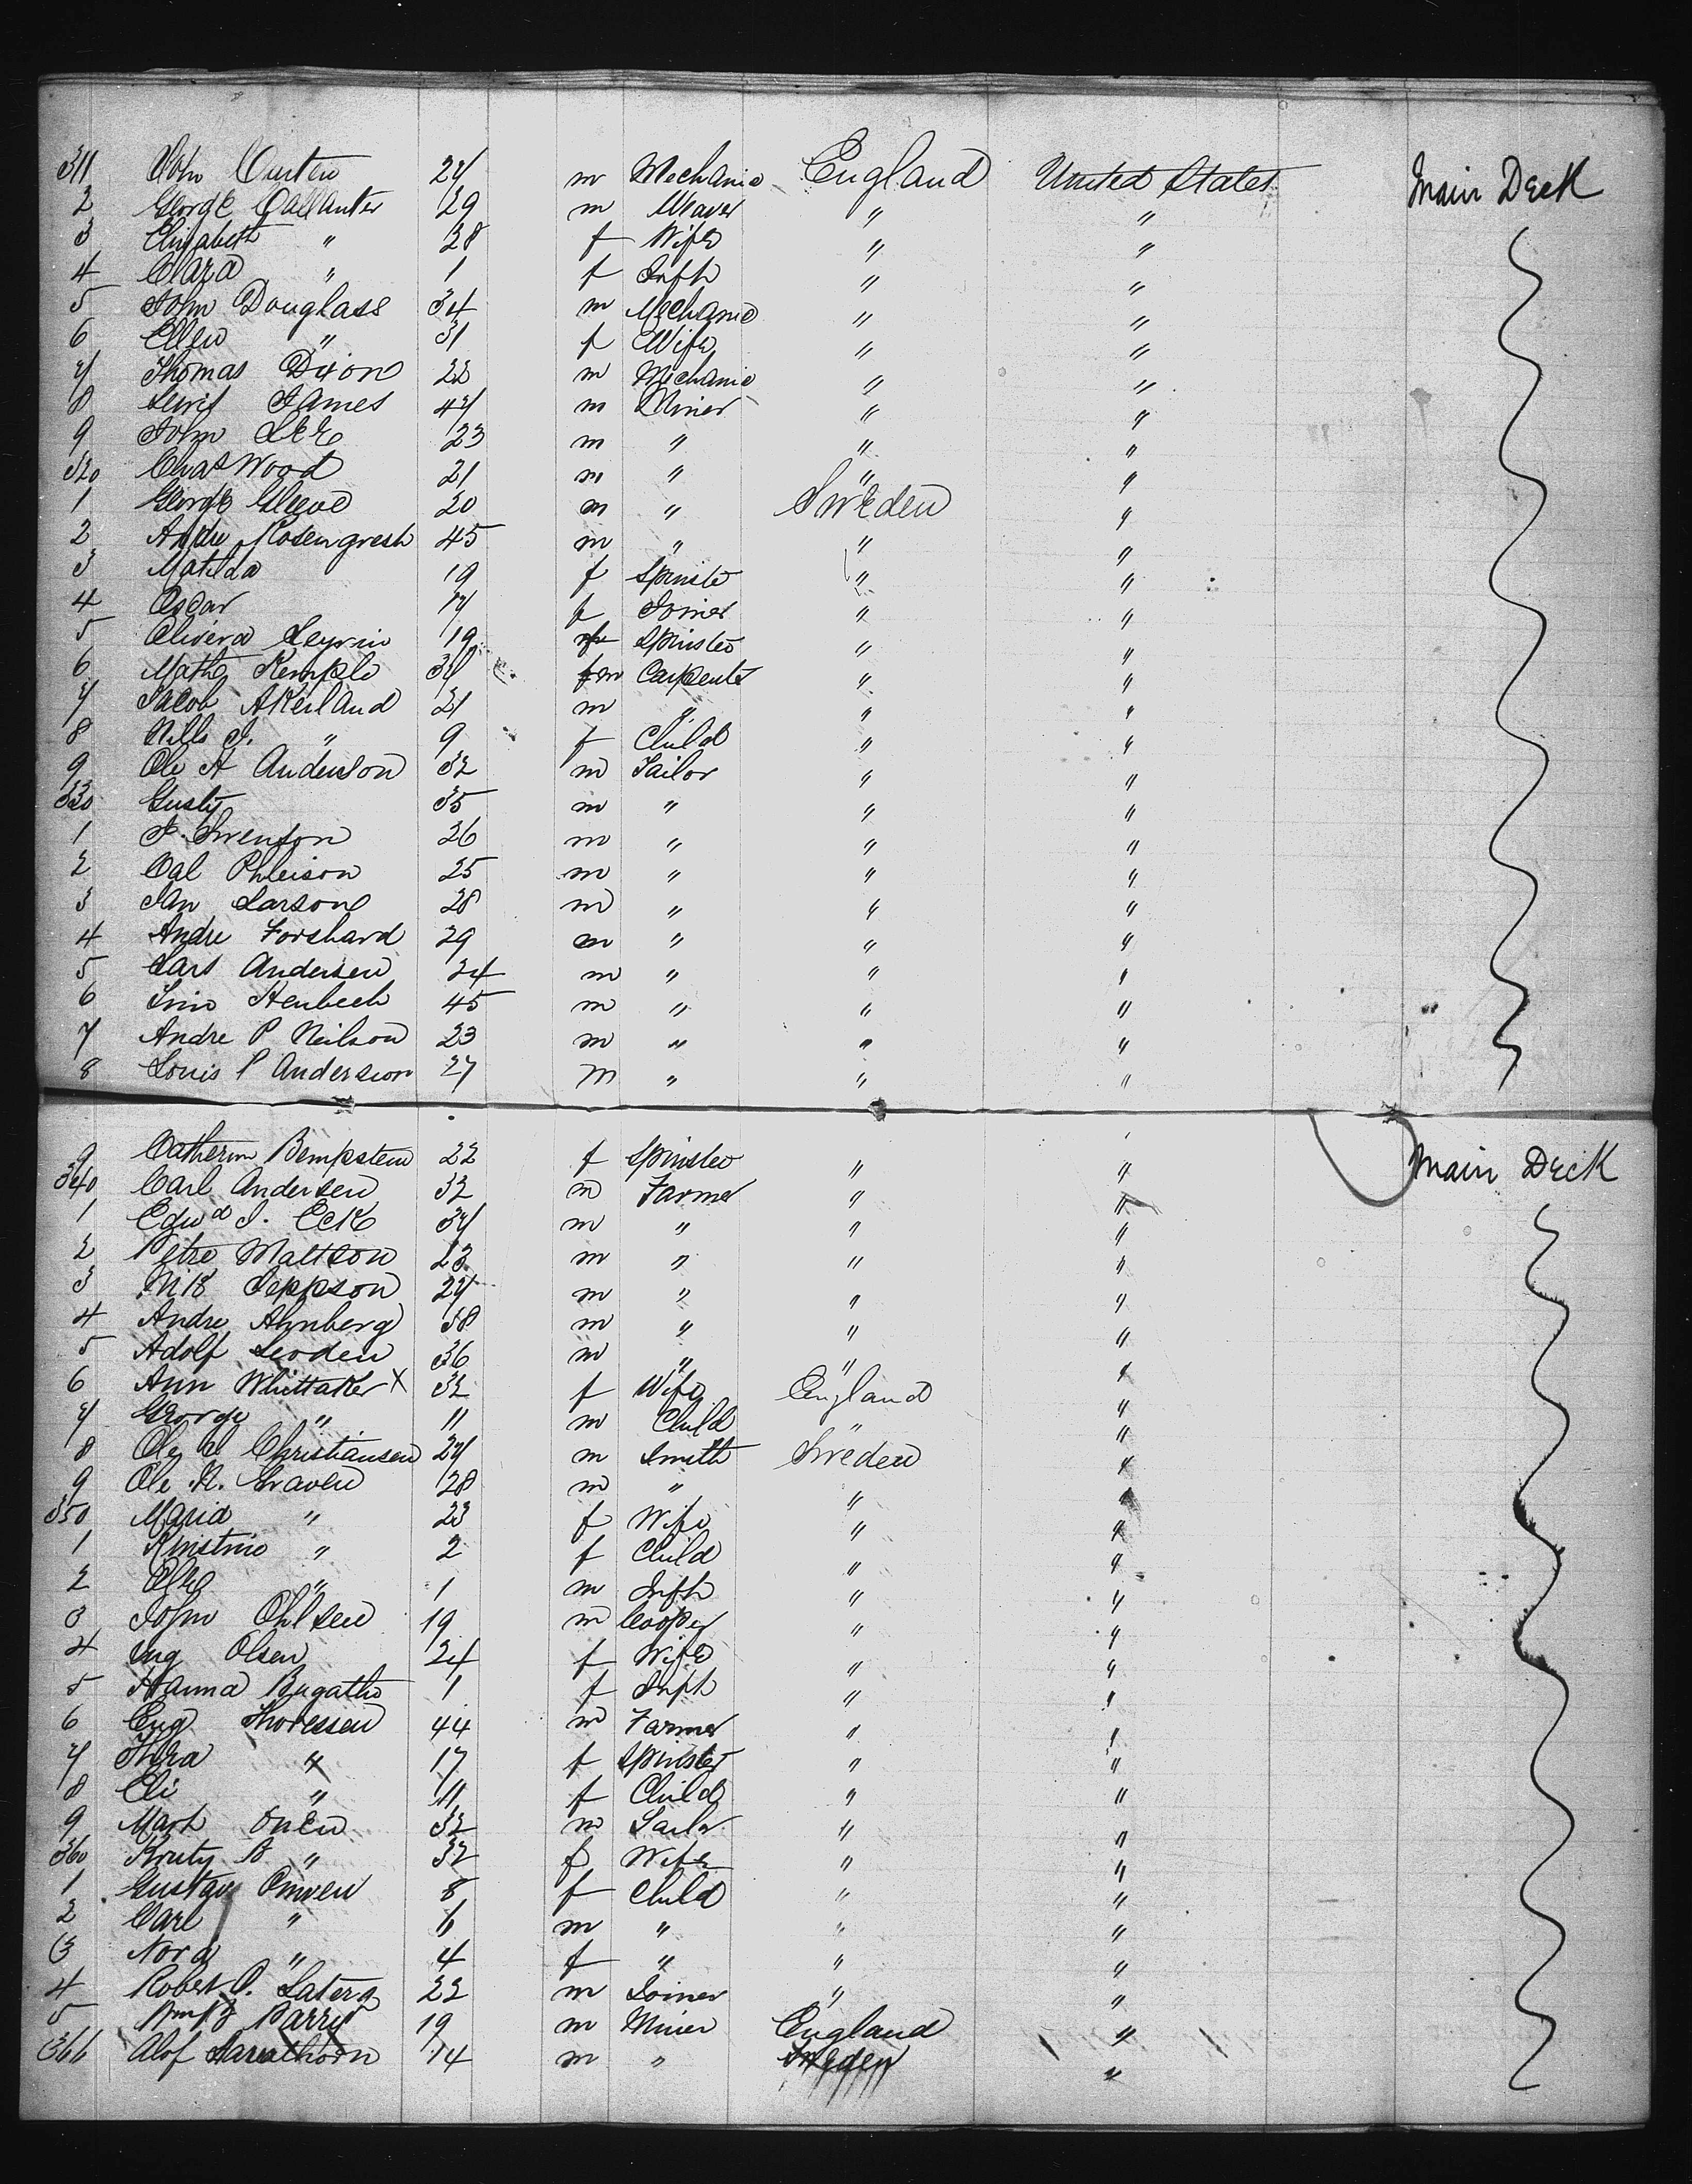 311 John Curten 27 m Mechanic England United States Main Deck
2 George Callanter 29 m Weaver " "
3 Elizabeth " 28 f Wife " "
4 Clara " 1 f Infh " "
5 John Douglass 34 m Mechanic " "
6 Ellen " 31 f Wife " "
7 Thomas Dixon 22 m Mechanic " "
8 Lewis James 47 m Miner " "
9 John Lee 23 m " " "
320 Chas Wood 21 m " " "
1 George Gleeve 20 m " Sweden "
2 Andre Rosengresh 45 m " " "
3 Matilda 19 f Spinste " "
4 Oscar 17 f Joiner " "
5 Olivera 19 f Spinster " "
6 Mathe Kemple 37 m Carpenter " "
7 Jacob Akerland 21 m " " "
8 Nills J. " 9 f Child " "
9 Ole A Anderson 32 m Tailor " "
330 Gusty 35 m " " "
1 J. Swenson 26 m " " "
2 Cal Phleison 25 m " " "
3 Jan Larson 28 m " " "
4 Andre Forshard 29 m " " "
5 Lars Andersen 24 m " " "
6 Henbech 45 m " " "
7 Andre P Neilson 23 m " " "
8 Louis P Anderson 27 m " " "
9 Catherin Bempstem 22 f Spinster " " Main Deck
340 Carl Andersen 32 m Farmer " "
1 Edwd J. Eck 37 m " " "
2 Petre Mattson 23 m " " "
3 Nils Jeppson 27 m " " "
4 Andre Ahnberg 38 m " " "
5 Adolf Leoden 36 m " " "
6 Ann Whittaker X 32 f Wife England "
7 George " 11 m Child " "
8 Ole Christiansen 27 m Smith Sweden "
9 Ole N. Graven 28 m " " "
350 Maria " 23 f Wife " "
1 Kinstino " 2 f Child " "
2 Ole " 1 m Infh " "
3 John Ohlsen 19 m Cooper " "
4 Ing Olsen 24 f Wife " "
5 Hanna Bugatho 1 f Infh " "
6 Eng Thoressen 44 m Farmer " "
7 Thra " 17 f Spinster " "
8 Eli " 11 f Child " "
9 Math Onen 32 m Tailr " "
360 Kruty B " 32 f Wife " "
1 Gustav Onwen 8 f Child " "
2 Carl " 6 m " " "
3 Nora " 4 f " " "
4 Robert P. Saterg 22 m Joiner " "
5 Barry 19 m Miner England "
366 Alof 14 m " Sweden "